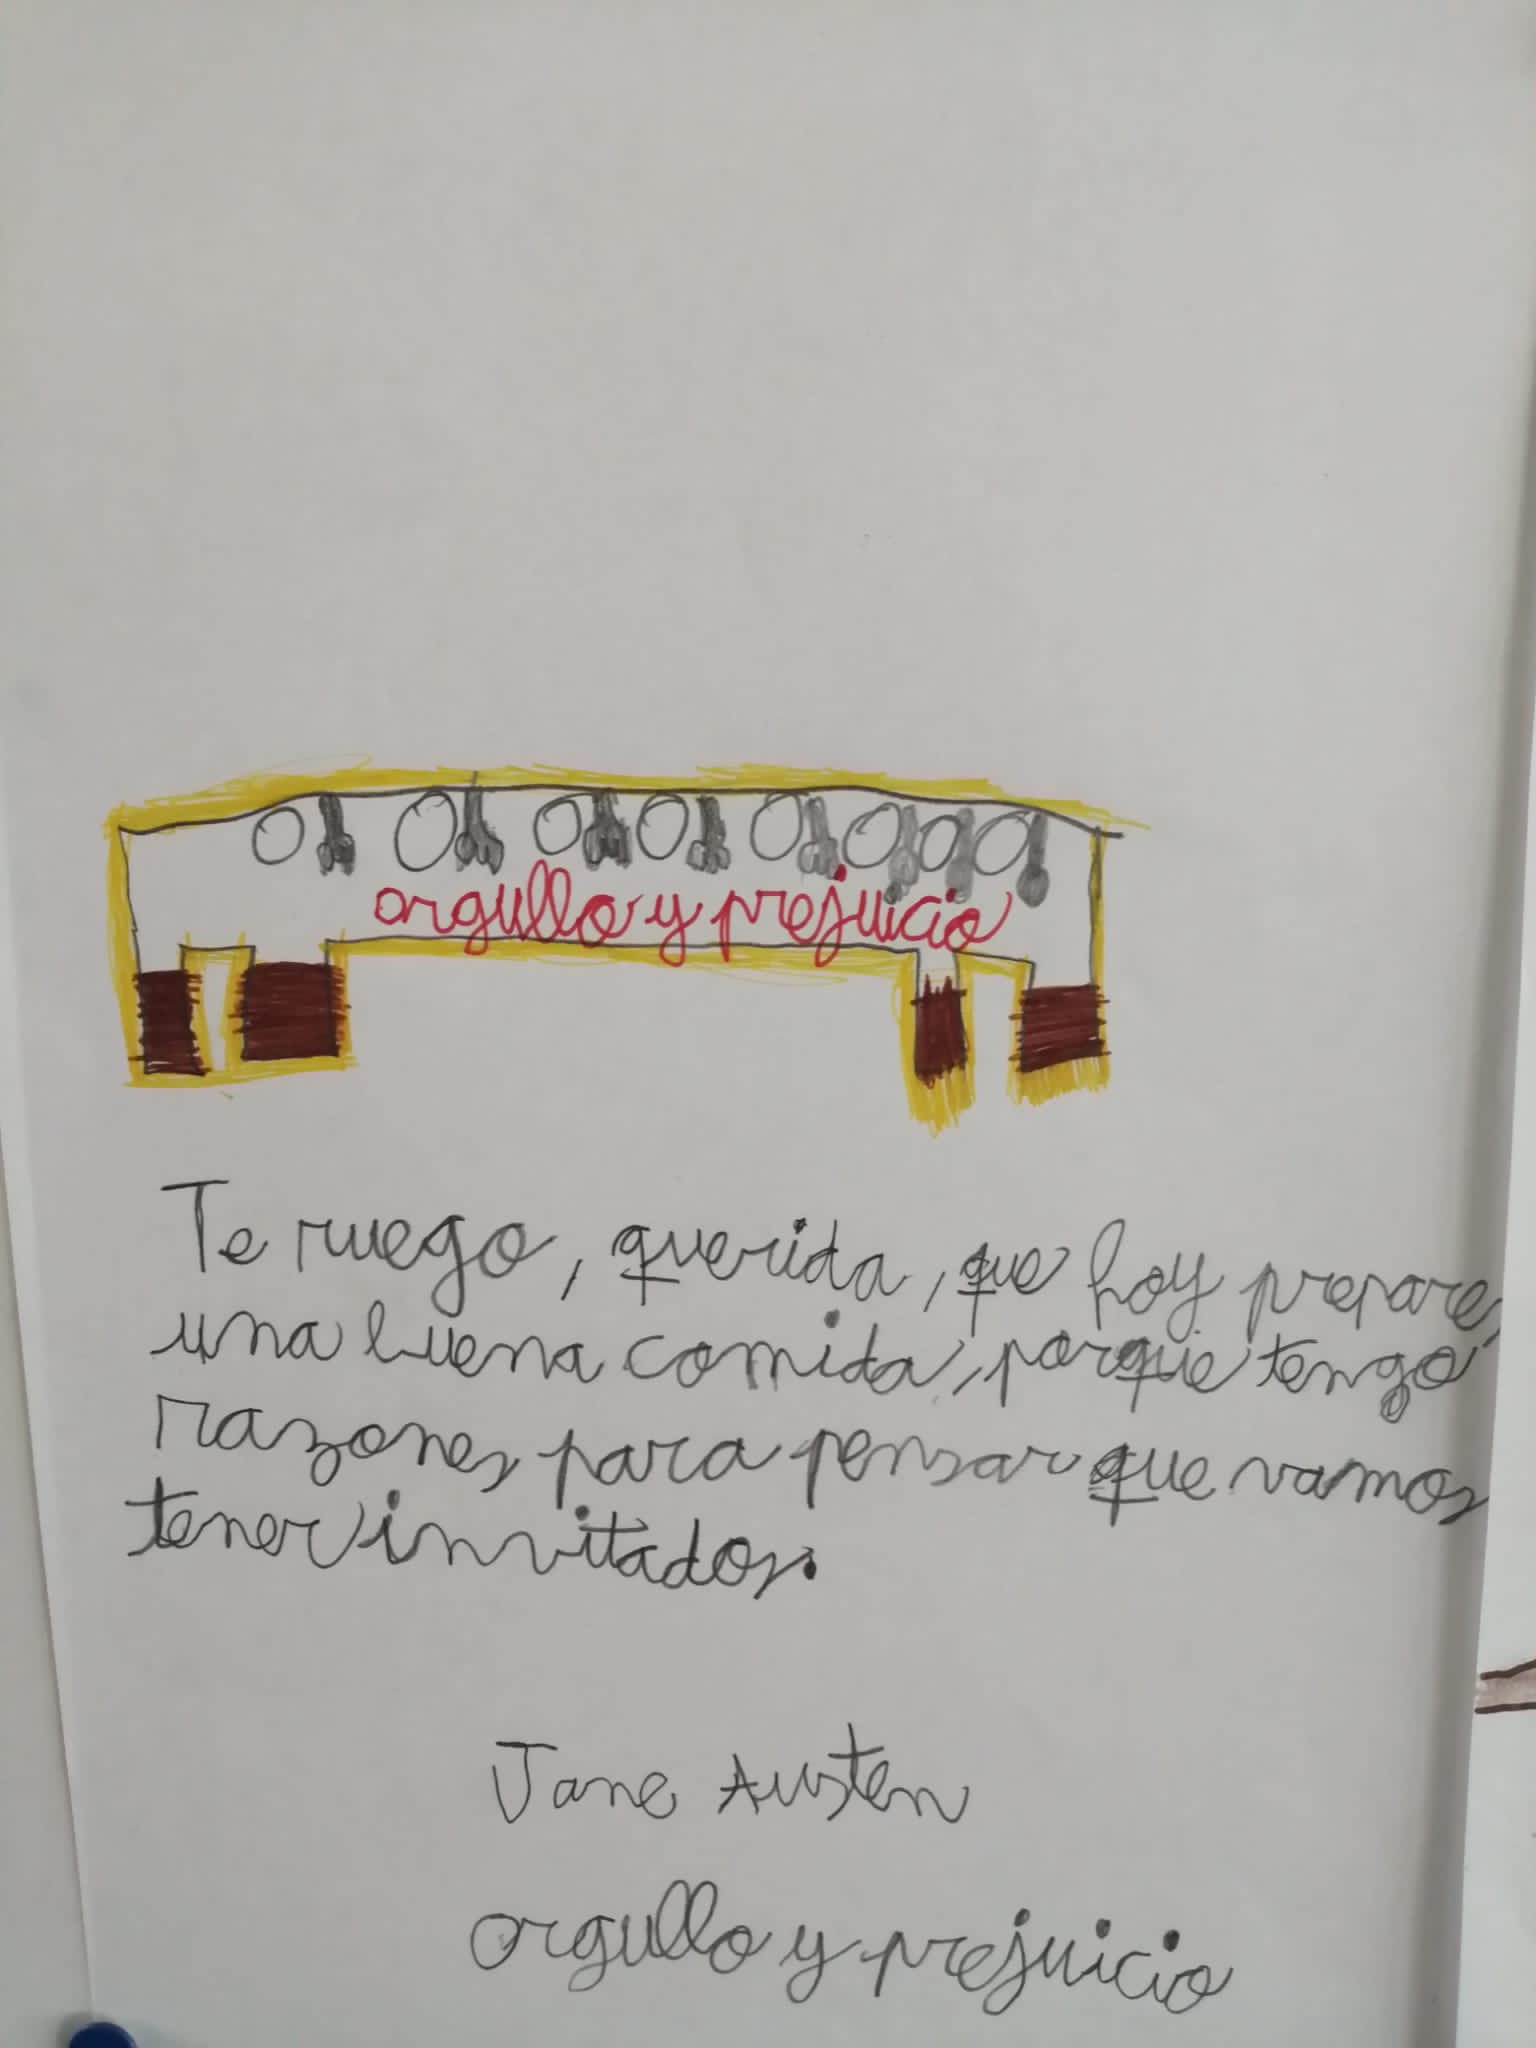 orgullo y prejuicio
Te ruego, querida, que hoy prepares
una buena comida, porque tengo
razones para pensar que vamos
tener invitados.
Jane Austen
orgullo y prejuicio